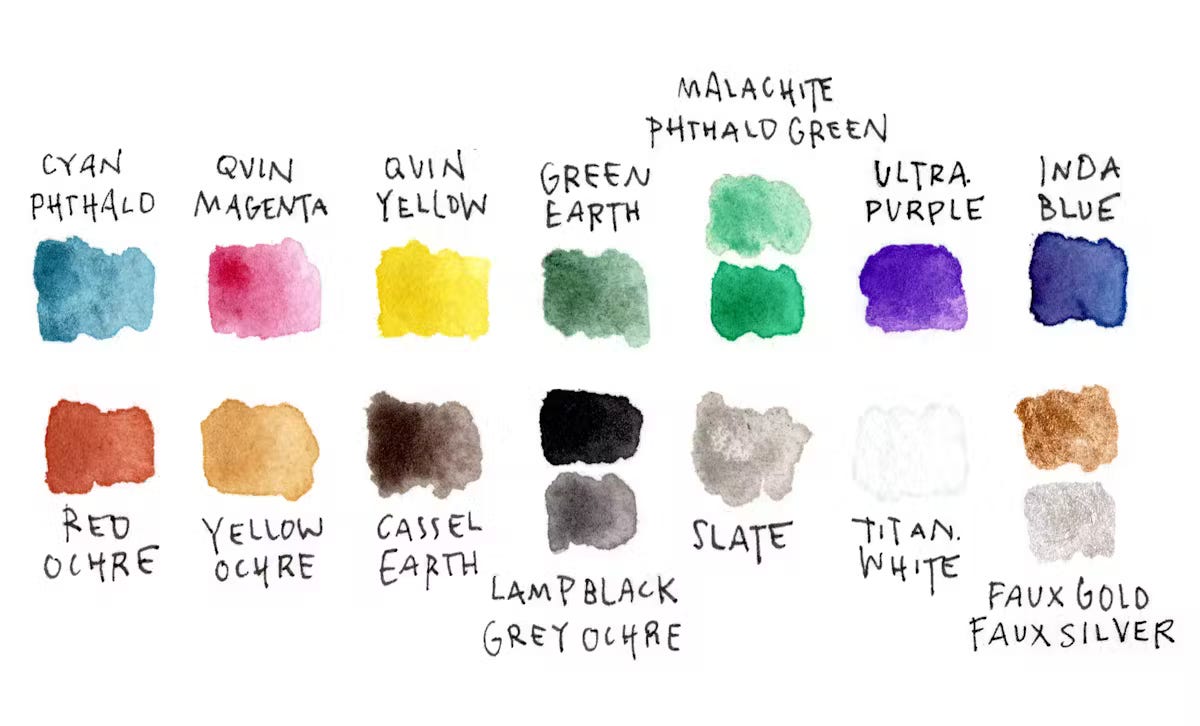 MALACHITE
PHTHALO GREEN
CYAN
PHTHALO
QUIN
MAGENTA
QUIN
YELLOW
GREEN
EARTH
ULTRA.
PURPLE
INDA
BLUE
RED
OCHRE
YELLOW
OCHRE
CASSEL
EARTH
LAMP BLACK
GREY OCHRE
SLATE
TITAN.
WHITE
FAUX GOLD
FAUX SILVER